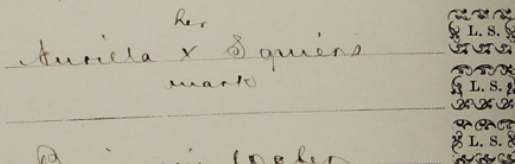 her
Aurilla x Squiers L. S.
mark
L. S.
L. S.